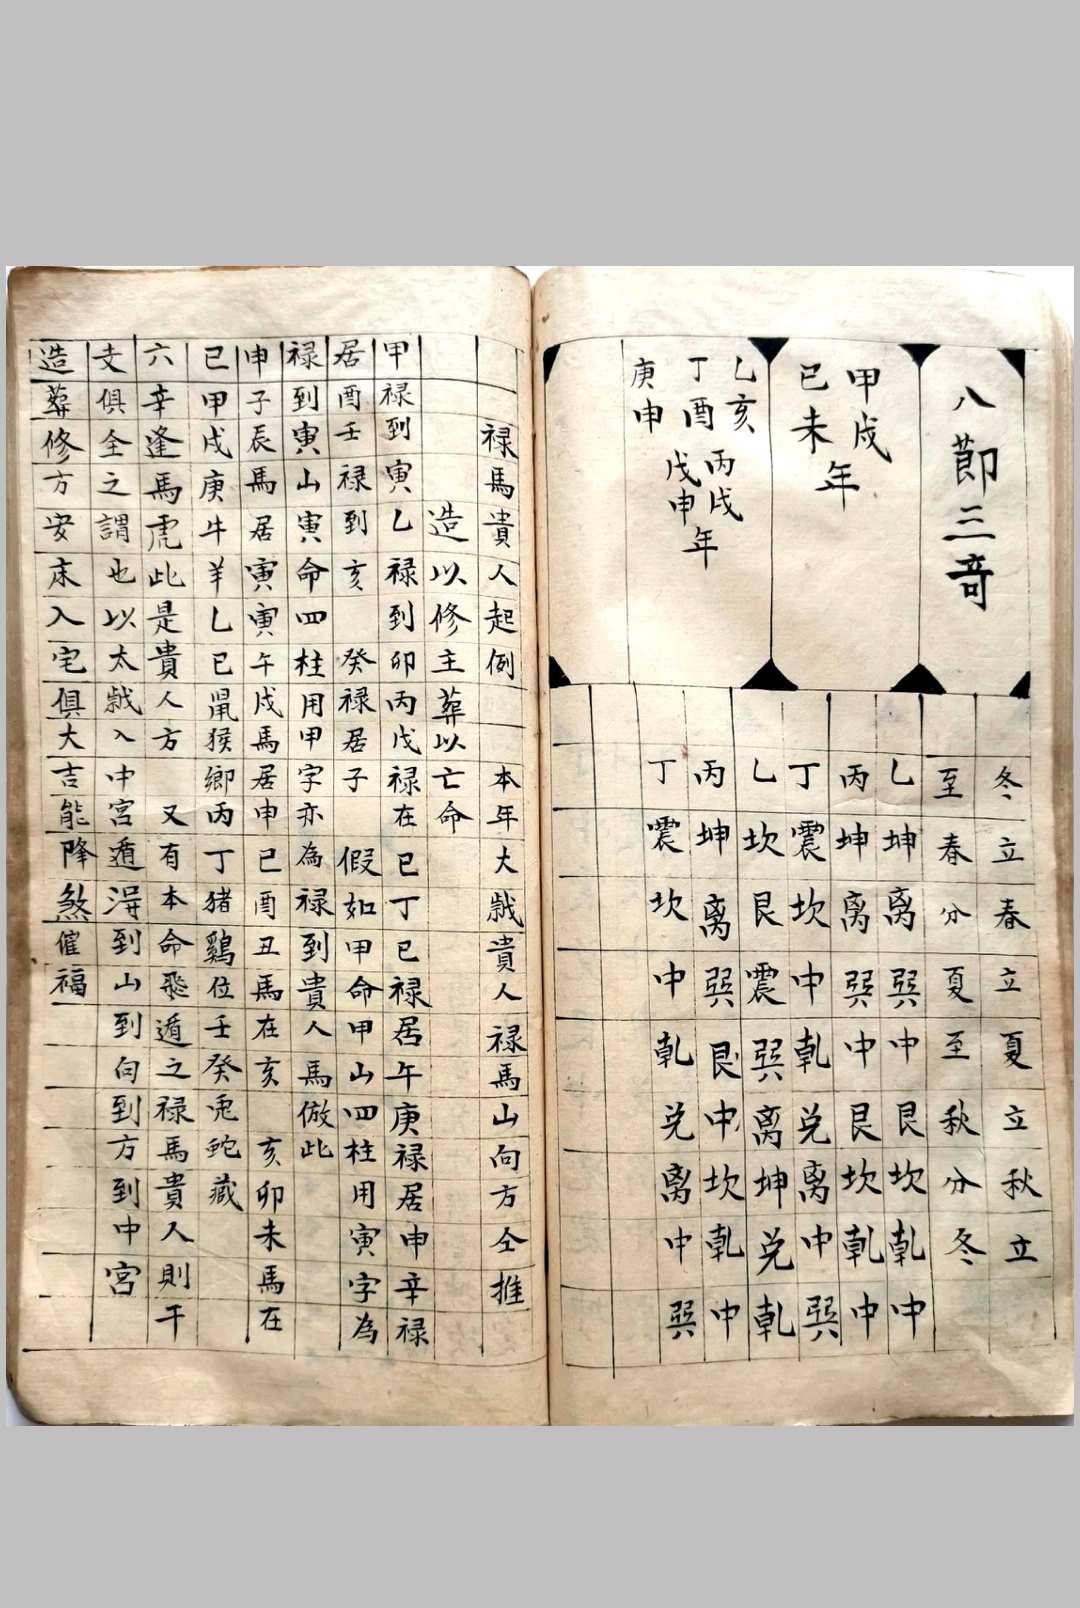 八節三竒
甲戍
己未
年
乙亥
丁酉
庚申
丙戍
戊申
年
冬立春立夏立秋立
至春分夏至秋分冬
乙坤离巽中艮坎乹中
丙坤离巽中艮坎乹中
丁震坎中乹兑离中巽
乙坎艮震巽离坤兑乹
丙坤离巽艮中坎乹中
丁震坎中乹兑离中巽
禄馬貴人起例 本年大嵗貴人禄馬山向方仝推
造以修主葬以亡命
甲禄到寅乙禄到卯丙戊禄在巳丁巳禄居午庚禄居申辛禄
居酉壬禄到亥 癸禄居子 假如甲命甲山四柱用寅字為
禄到寅山寅命四柱用甲字亦為禄到貴人馬倣此
申子辰馬居寅寅午戍馬居申巳酉丑馬在亥 亥卯未馬在
巳甲戍庚牛羊乙巳鼠猴鄉丙丁猪鷄位壬癸兎蛇藏
六辛逢馬虎此是貴人方 又有本命飛遁之禄馬貴人則干
支俱全之謂也以太嵗入中宮遁淂到山到向到方到中宮
造葬修方安床入宅俱大吉能降煞催福